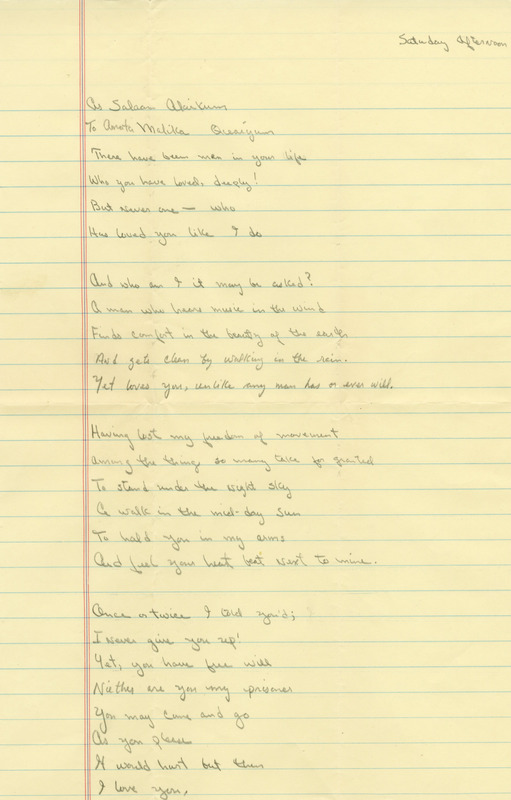 Saturday Afternoon
As Salaam Alaikum
To Malika
There have been men in your life
Who you have loved, deeply!
But never one — who
Has loved you like I do
And who am I it may be asked?
A man who hears music in the wind
Finds comfort in the beauty of the earth
And gets clean by walking in the rain.
Yet loves you, unlike any man has or ever will.
Having lost my freedom of movement
among the things so many take for granted
To stand under the night sky
A walk in the mid-day sun
To hold you in my arms
And feel your heart beat next to mine.
Once or twice I told you;
I never give you up!
Yet, you have free will
Niether are you my prisoner
You may come and go
As you please
It would hurt but then
I love you,